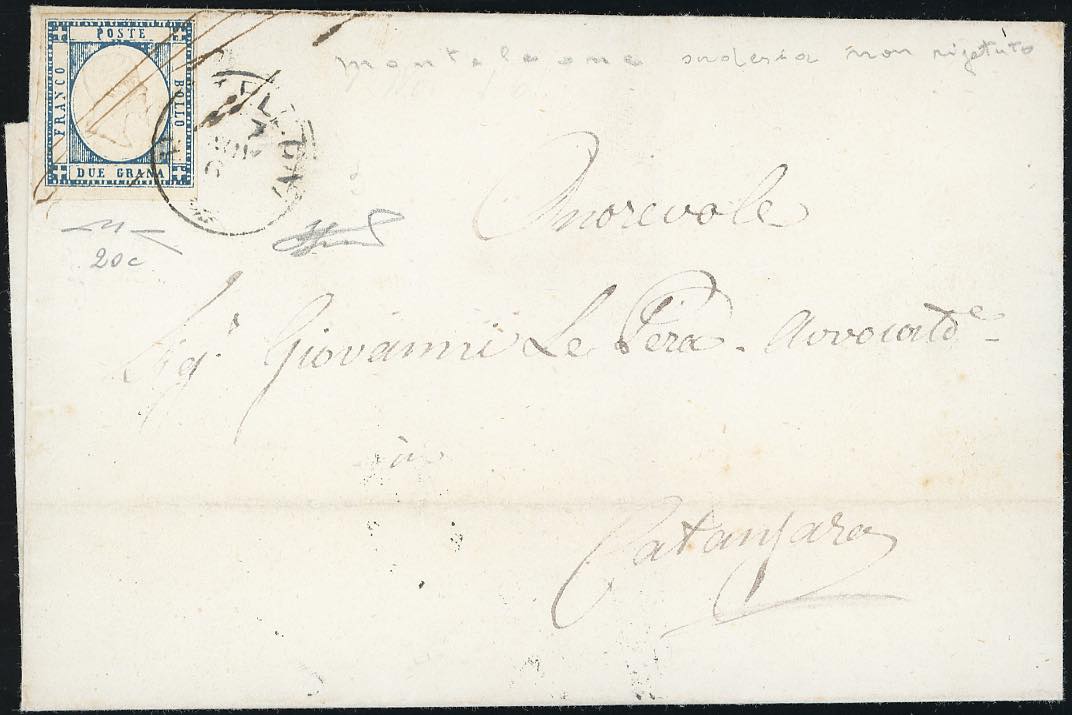 POSTE
FRANCO
BOLLO
DUE GRANA
monteleone non
20c
Onorevole
Sig.r Giovanni Le Pera - Avvocato
à
Catanzaro